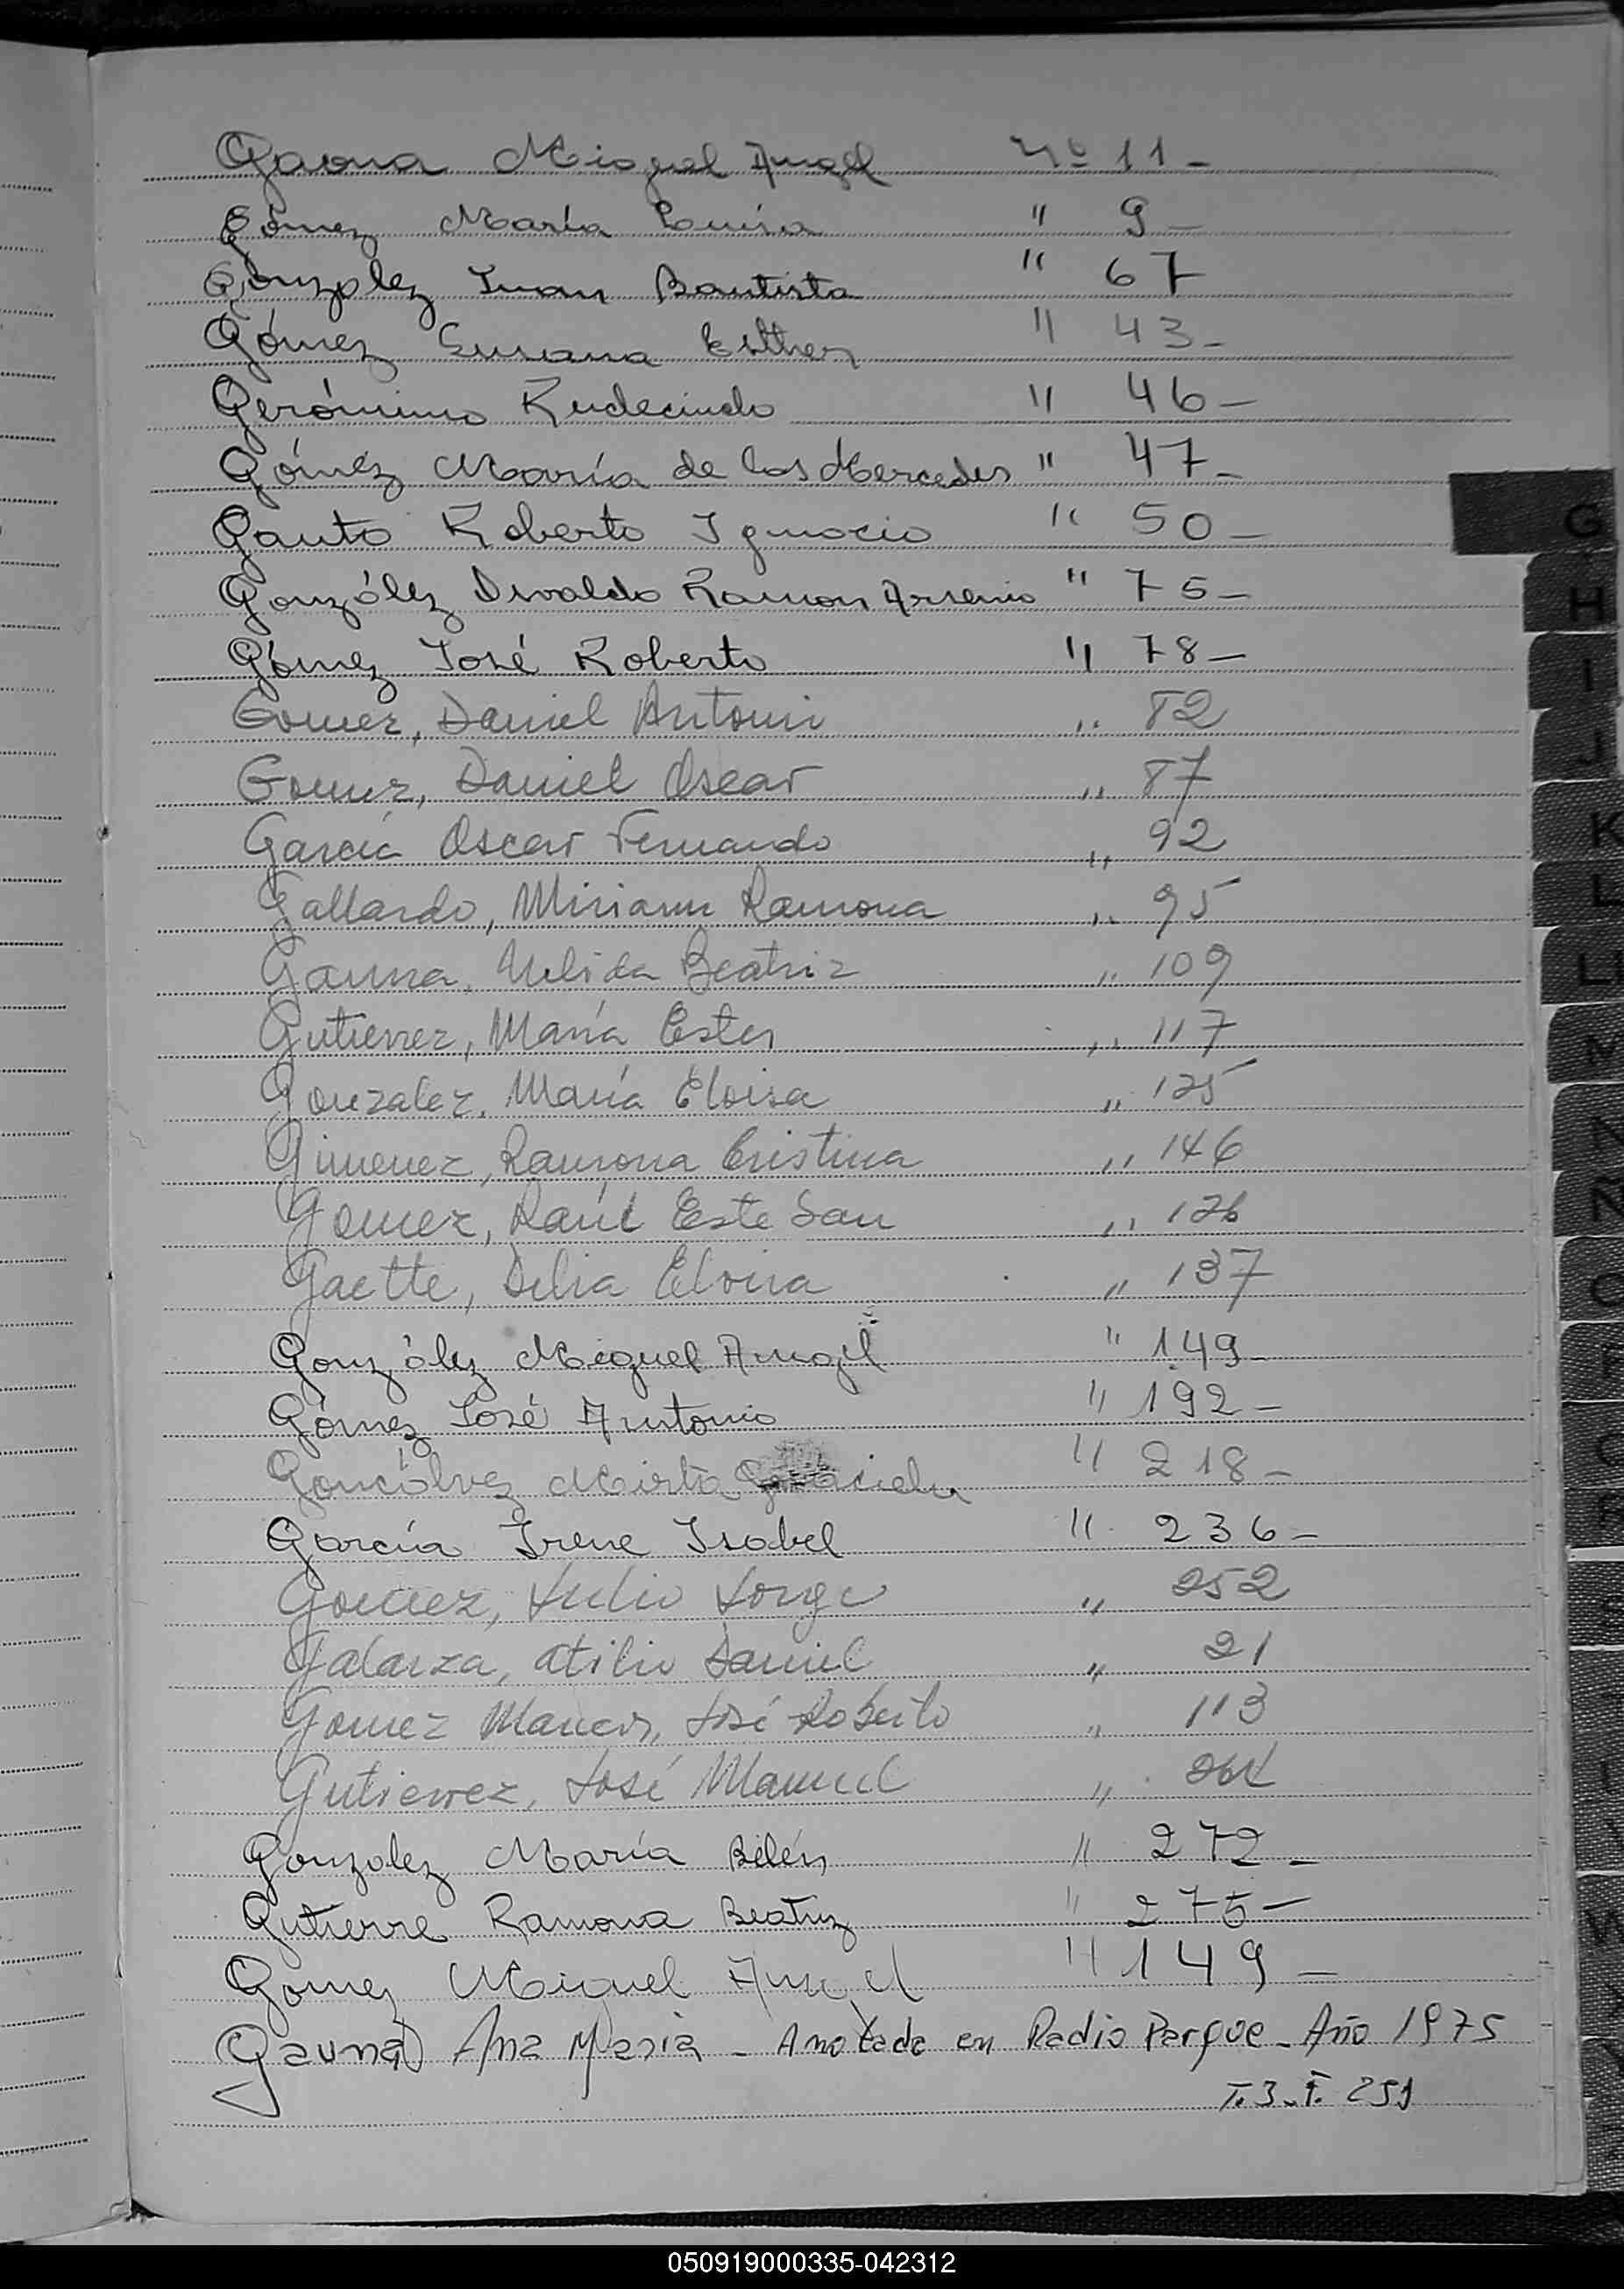 Gaona Miguel Angel Nº 11-
Gómez María Luisa " 9-
González Juan Bautista " 67
Gómez Susana Esther " 43-
Gerónimo Rudecindo " 46-
Gómez María de las Mercedes " 47-
Gauto Roberto Ignacio " 50-
González Osvaldo Ramon Arsenio " 75-
Gómez José Roberto " 78-
Gomez, Daniel Antonio " 82
Gomez, Daniel Oscar " 87
García Oscar Fernando " 92
Gallardo, Miriam Ramona " 95
Gauna, Nelida Beatriz " 109
Gutierrez, María Ester " 117
Gonzalez, María Eloisa " 125
Gimenez, Ramona Cristina " 146
Gomez, Raúl Esteban " 126
Gaette, Delia Eloisa " 137
González Miguel Angel " 149-
Gómez José Antonio " 192-
Goncálvez Mirta Graciela " 218-
García Irene Isabel " 236-
Gomez, Julio Jorge " 252
Galarza, Atilio Daniel " 21
Gomez José Roberto " 113
Gutierrez, José Manuel "
Gonzalez María Belén " 272-
Gutierre Ramona Beatriz " 275-
Gomez Miguel Angel " 149-
Gauna Ana Maria - Anotada en Radio Parque - Año 1975
T. 3 - F. 251
G
H
I
J
K
L
LL
M
N
Ñ
O
P
Q
R
050919000335-042312